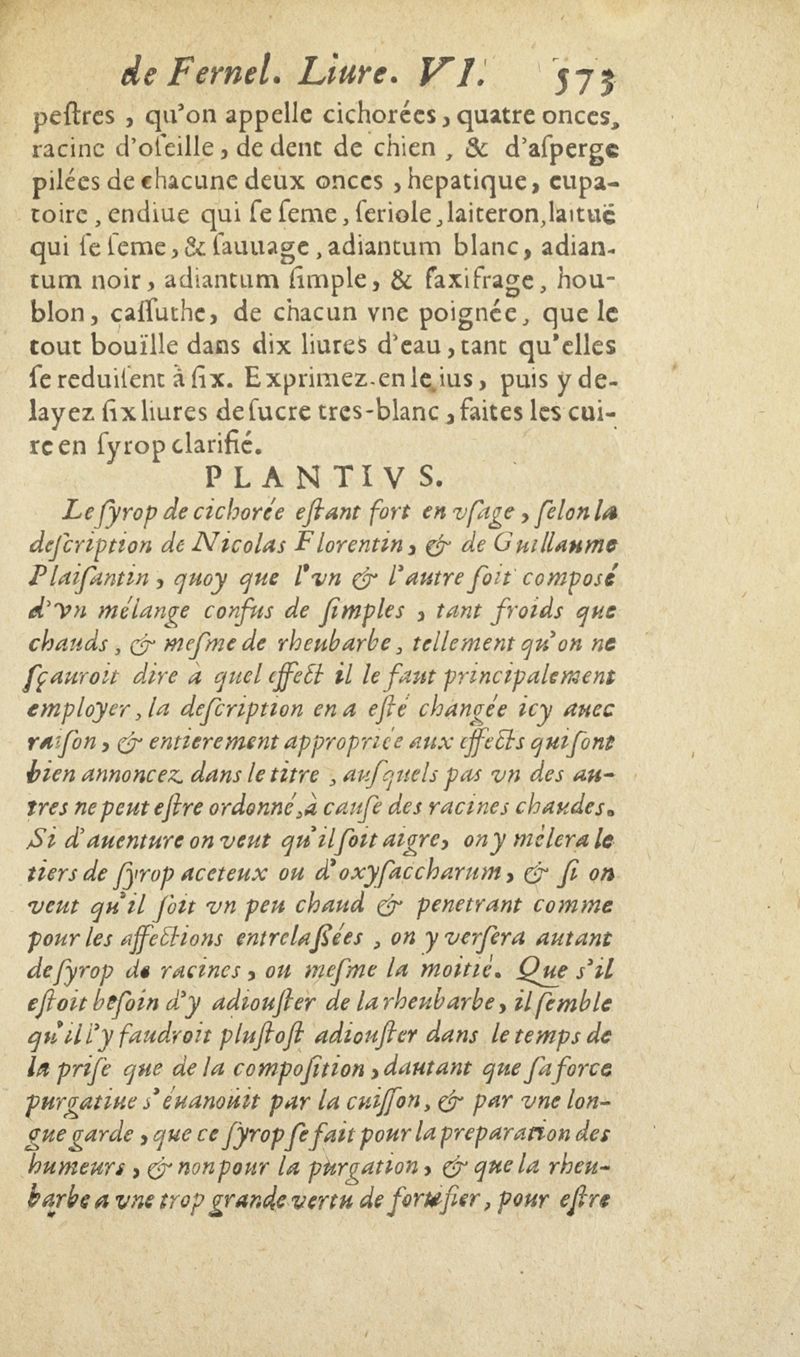 de Fernel. Liure. VI. 573
peſtres , qu'on appelle cichorées, quatre onces,
racine d'oſeille, de dent de chien , & d'aſperge
pilées de chacune deux onces , hepatique, eupa-
toire, endiue qui ſe ſeme, ſeriole, laiteron, laituë
qui ſe ſeme, & ſauuage, adiantum blanc, adian-
tum noir, adiantum ſimple, & ſaxifrage, hou-
blon, caſſuthe, de chacun vne poignée, que le
tout bouïlle dans dix liures d'eau, tant qu'elles
ſe reduiſent à ſix. Exprimez-en le ius, puis y de-
layez ſix liures de ſucre tres-blanc, faites les cui-
re en ſyrop clarifié.
PLANTIVS.
Le ſyrop de cichorée eſtant fort en vſage, ſelon la
deſcription de Nicolas Florentin, & de Guillaume
Plaiſantin, quoy que l'vn & l'autre ſoit composé
d'vn mélange confus de ſimples , tant froids que
chauds, & meſme de rheubarbe, tellement qu'on ne
ſçauroit dire à quel effect il le faut principalement
employer, la deſcription en a eſté changée icy auec
raiſon, & entierement appropriée aux effects qui ſont
bien annoncez dans le titre , auſquels pas vn des au-
tres ne peut eſtre ordonné, à cauſe des racines chaudes.
Si d'auenture on veut qu'il ſoit aigre, on y mélera le
tiers de ſyrop aceteux ou d'oxyſaccharum, & ſi on
veut qu'il ſoit vn peu chaud & penetrant comme
pour les affections entrelaſſées , on y verſera autant
de ſyrop de racines, ou meſme la moitié. Que s'il
eſtoit beſoin d'y adiouſter de la rheubarbe, il ſemble
qu'il l'y faudroit pluſtoſt adiouſter dans le temps de
la priſe que de la compoſition, dautant que ſa force
purgatiue s'éuanoüit par la cuiſſon, & par vne lon-
gue garde, que ce ſyrop ſe fait pour la preparation des
humeurs, & non pour la purgation, & que la rheu-
barbe a vne trop grande vertu de fortifier, pour eſtre